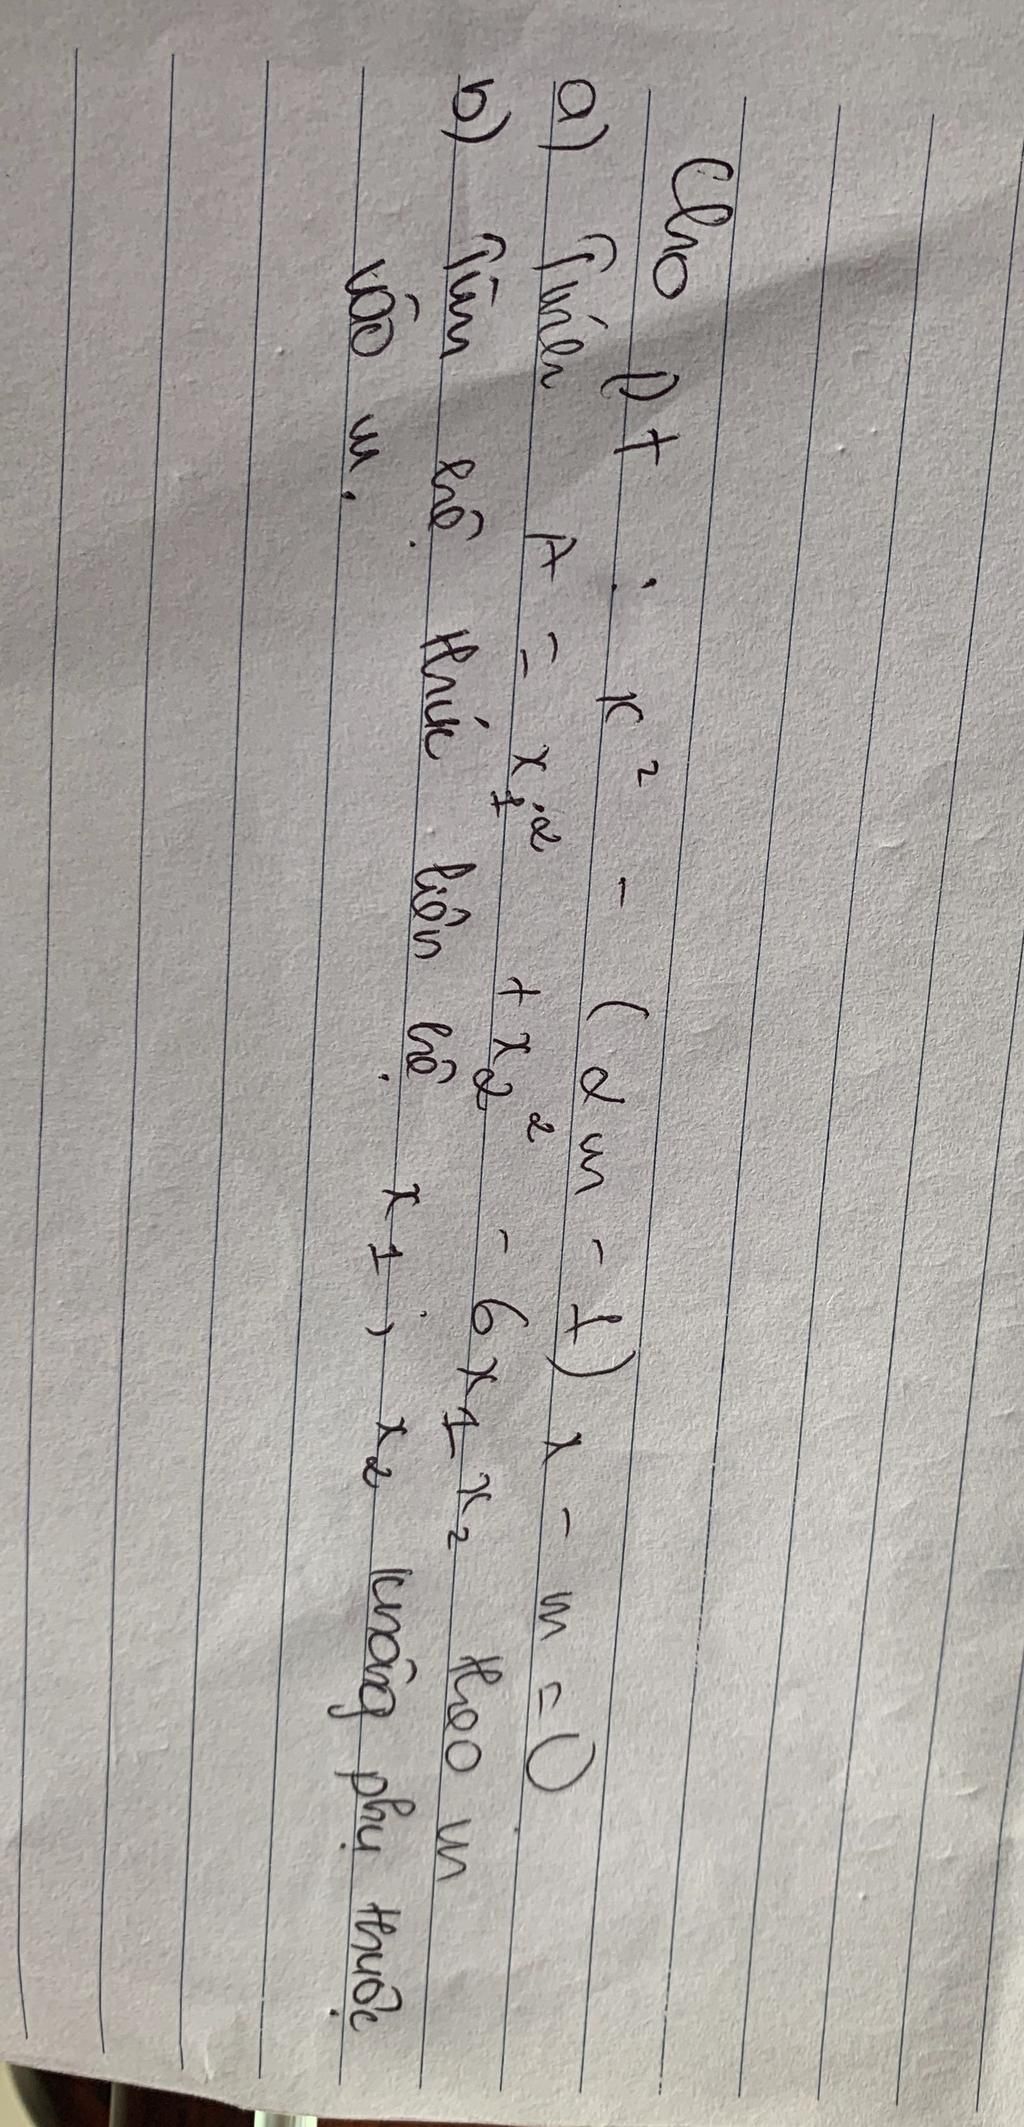 Cho pt : x² - (2m - 1) x - m = 0
a) Tính A = x₁² + x₂² - 6x₁x₂ theo m
b) Tìm hệ thức liên hệ x₁, x₂ không phụ thuộc
vào m.